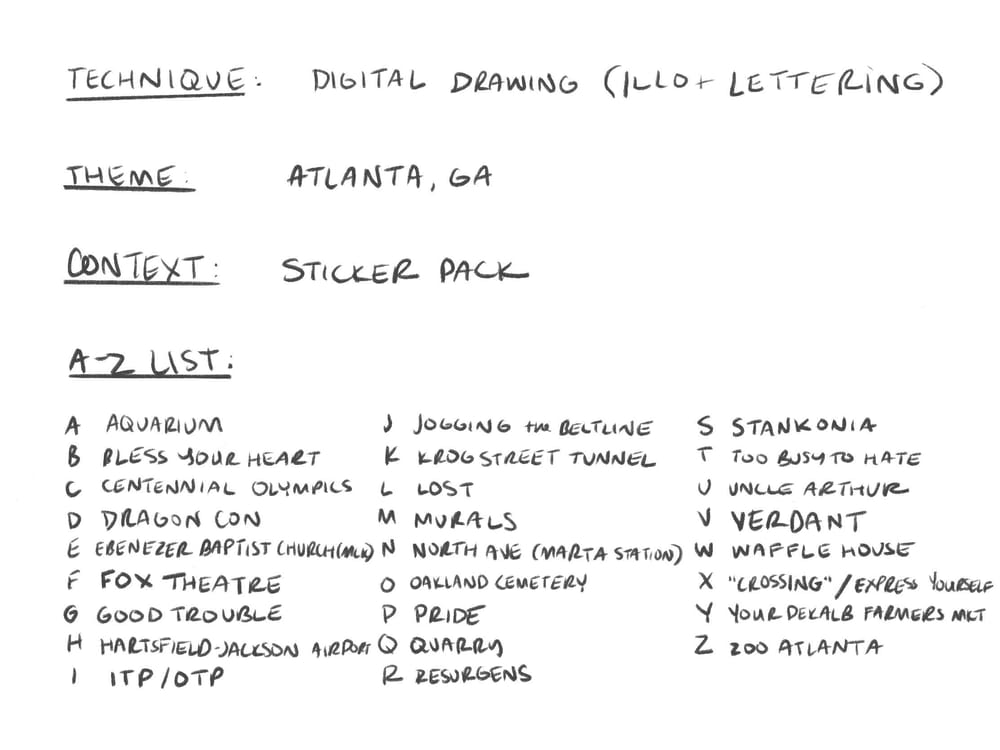 TECHNIQUE: DIGITAL DRAWING (ILLO + LETTERING)
THEME: ATLANTA, GA
CONTEXT: STICKER PACK
A-Z LIST:
A AQUARIUM
B BLESS YOUR HEART
C CENTENNIAL OLYMPICS
D DRAGON CON
E EBENEZER BAPTIST CHURCH (MLK)
F FOX THEATRE
G GOOD TROUBLE
H HARTSFIELD-JACKSON AIRPORT
I ITP/OTP
J JOGGING the BELTLINE
K KROG STREET TUNNEL
L LOST
M MURALS
N NORTH AVE (MARTA STATION)
O OAKLAND CEMETERY
P PRIDE
Q QUARRY
R RESURGENS
S STANKONIA
T TOO BUSY TO HATE
U UNCLE ARTHUR
V VERDANT
W WAFFLE HOUSE
X "CROSSING"/EXPRESS YOURSELF
Y YOUR DEKALB FARMERS MKT
Z ZOO ATLANTA